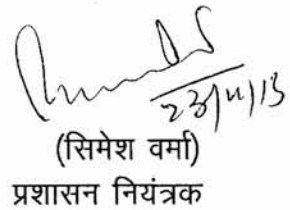 23/11/13
(सिमेश वर्मा)
प्रशासन नियंत्रक